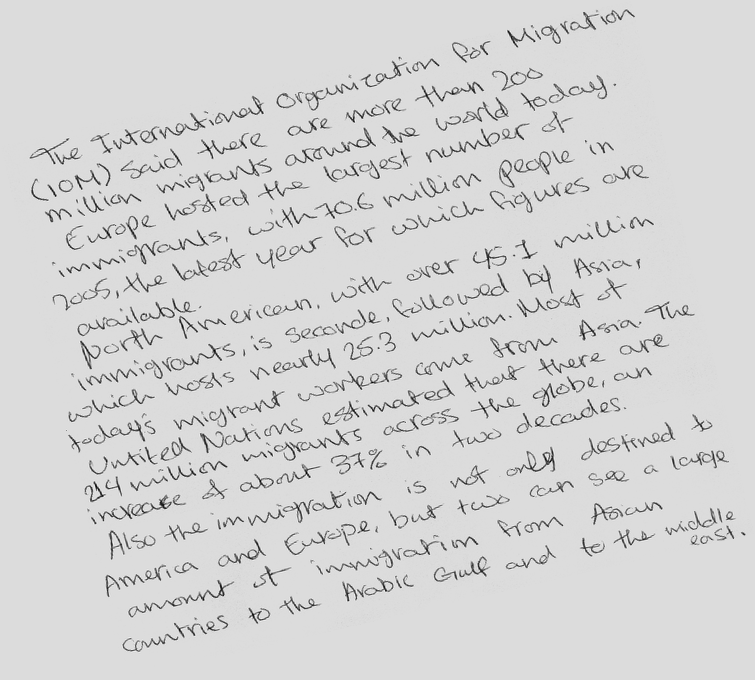 The International Organization for Migration
(IOM) said there are more than 200
million migrants around the world today.
Europe hosted the largest number of
immigrants, with 70.6 million people in
2005, the latest year for which figures are
available.
North American, with over 45.1 million
immigrants, is seconde, followed by Asia,
which hosts nearly 25.3 million. Most of
today's migrant workers come from Asia. The
Untited Nations estimated that there are
214 million migrants across the globe, an
increase of about 37% in two decades.
Also the immigration is not only destined to
America and Europe, but two can see a large
amount of immigration from Asian
countries to the Arabic Gulf and to the middle
east.